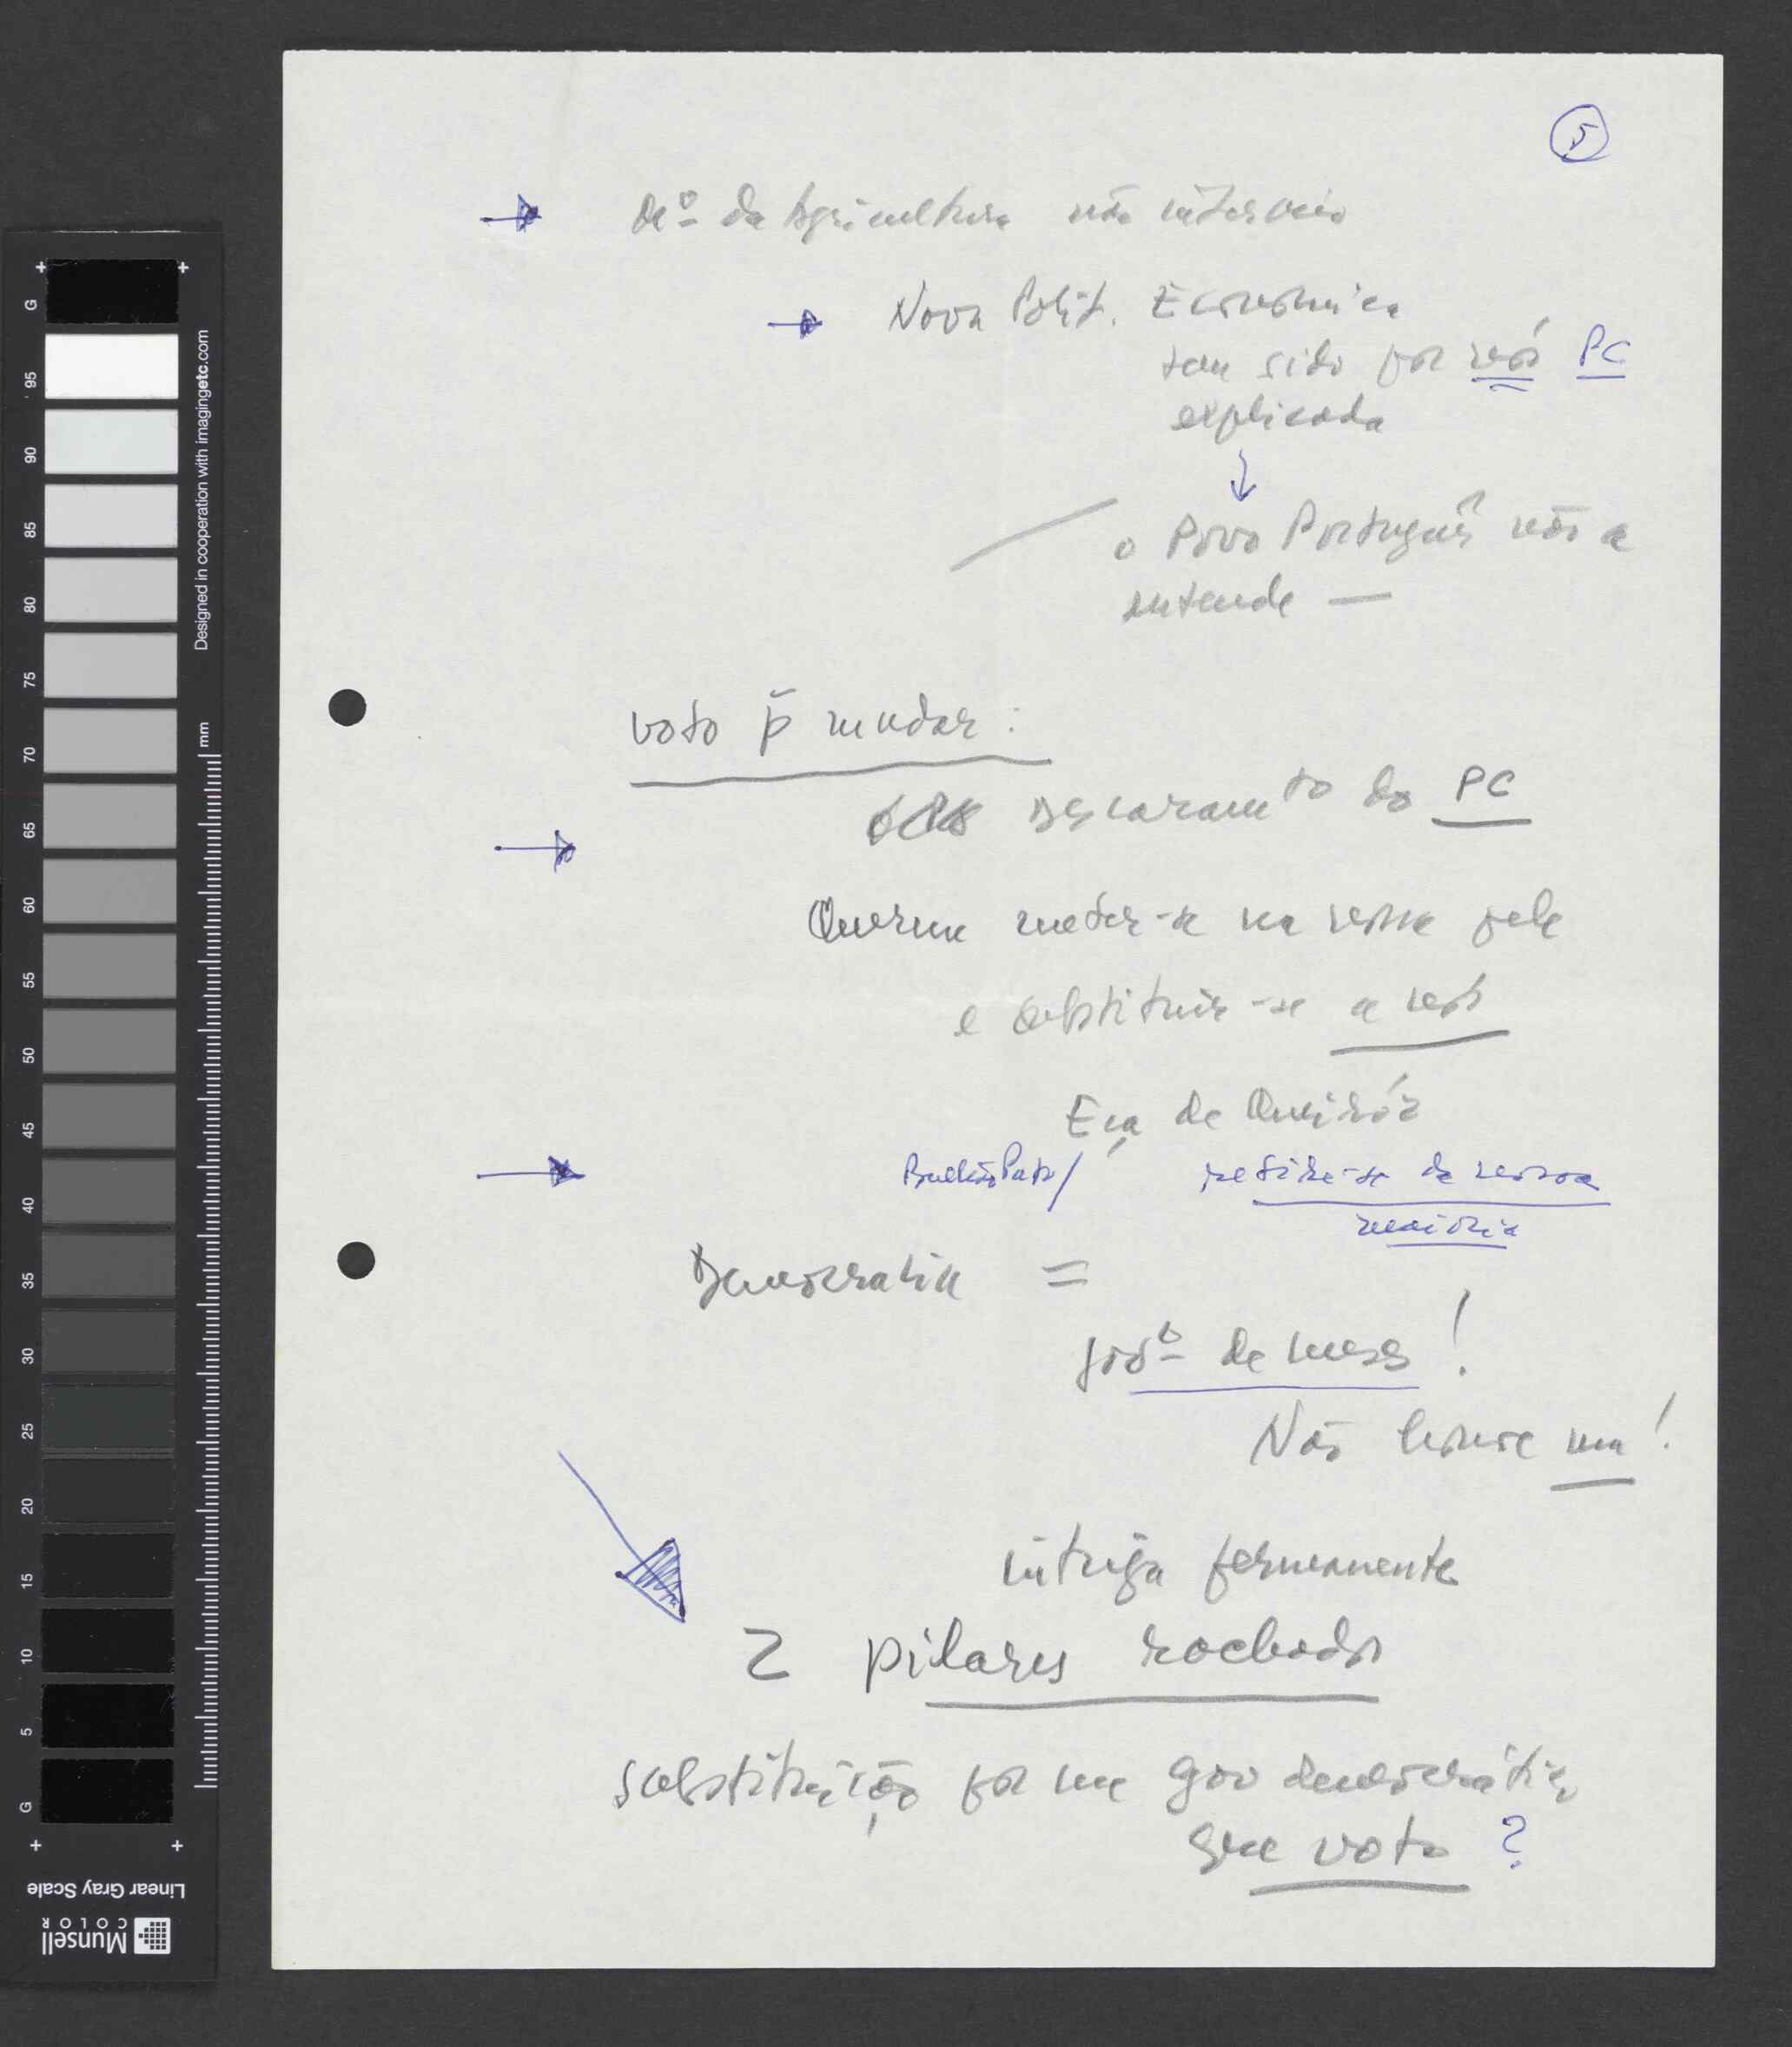 5
da Agricultura não interveio
Nova Polit. Economica
tem sido por vós PC
explicada
o Povo Português não a
entende —
voto p̃ mudar :
Descaramto do PC
Querem meter-se na vossa pele
e substituir-se a vós
Eça de Queiróz
Bulhão Pato / retire-se da vossa
maioria
Democratica =
govo de meses !
Não houve um !
intriga permanente
2 pilares rachados
substituição por um gov democrático
que voto ?
Designed in cooperation with imagingetc.com
mm
G 95 90 85 80 75 70 65 60 55 50 45 40 35 30 25 20 15 10 5 G
Linear Gray Scale
Munsell
COLOR